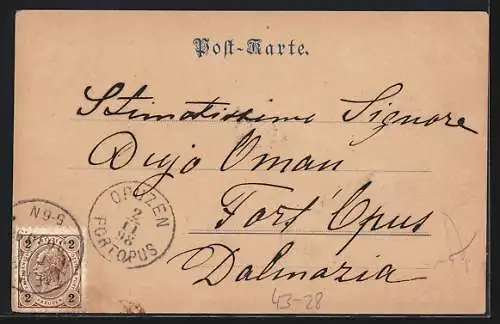 Post-Karte.
Stimatissimo Signore
Dujo Oman
Fort Opus
Dalmazia
OPUZEN
2
11
98
FORTOPUS
5-6N
2 2
2 2
43-28